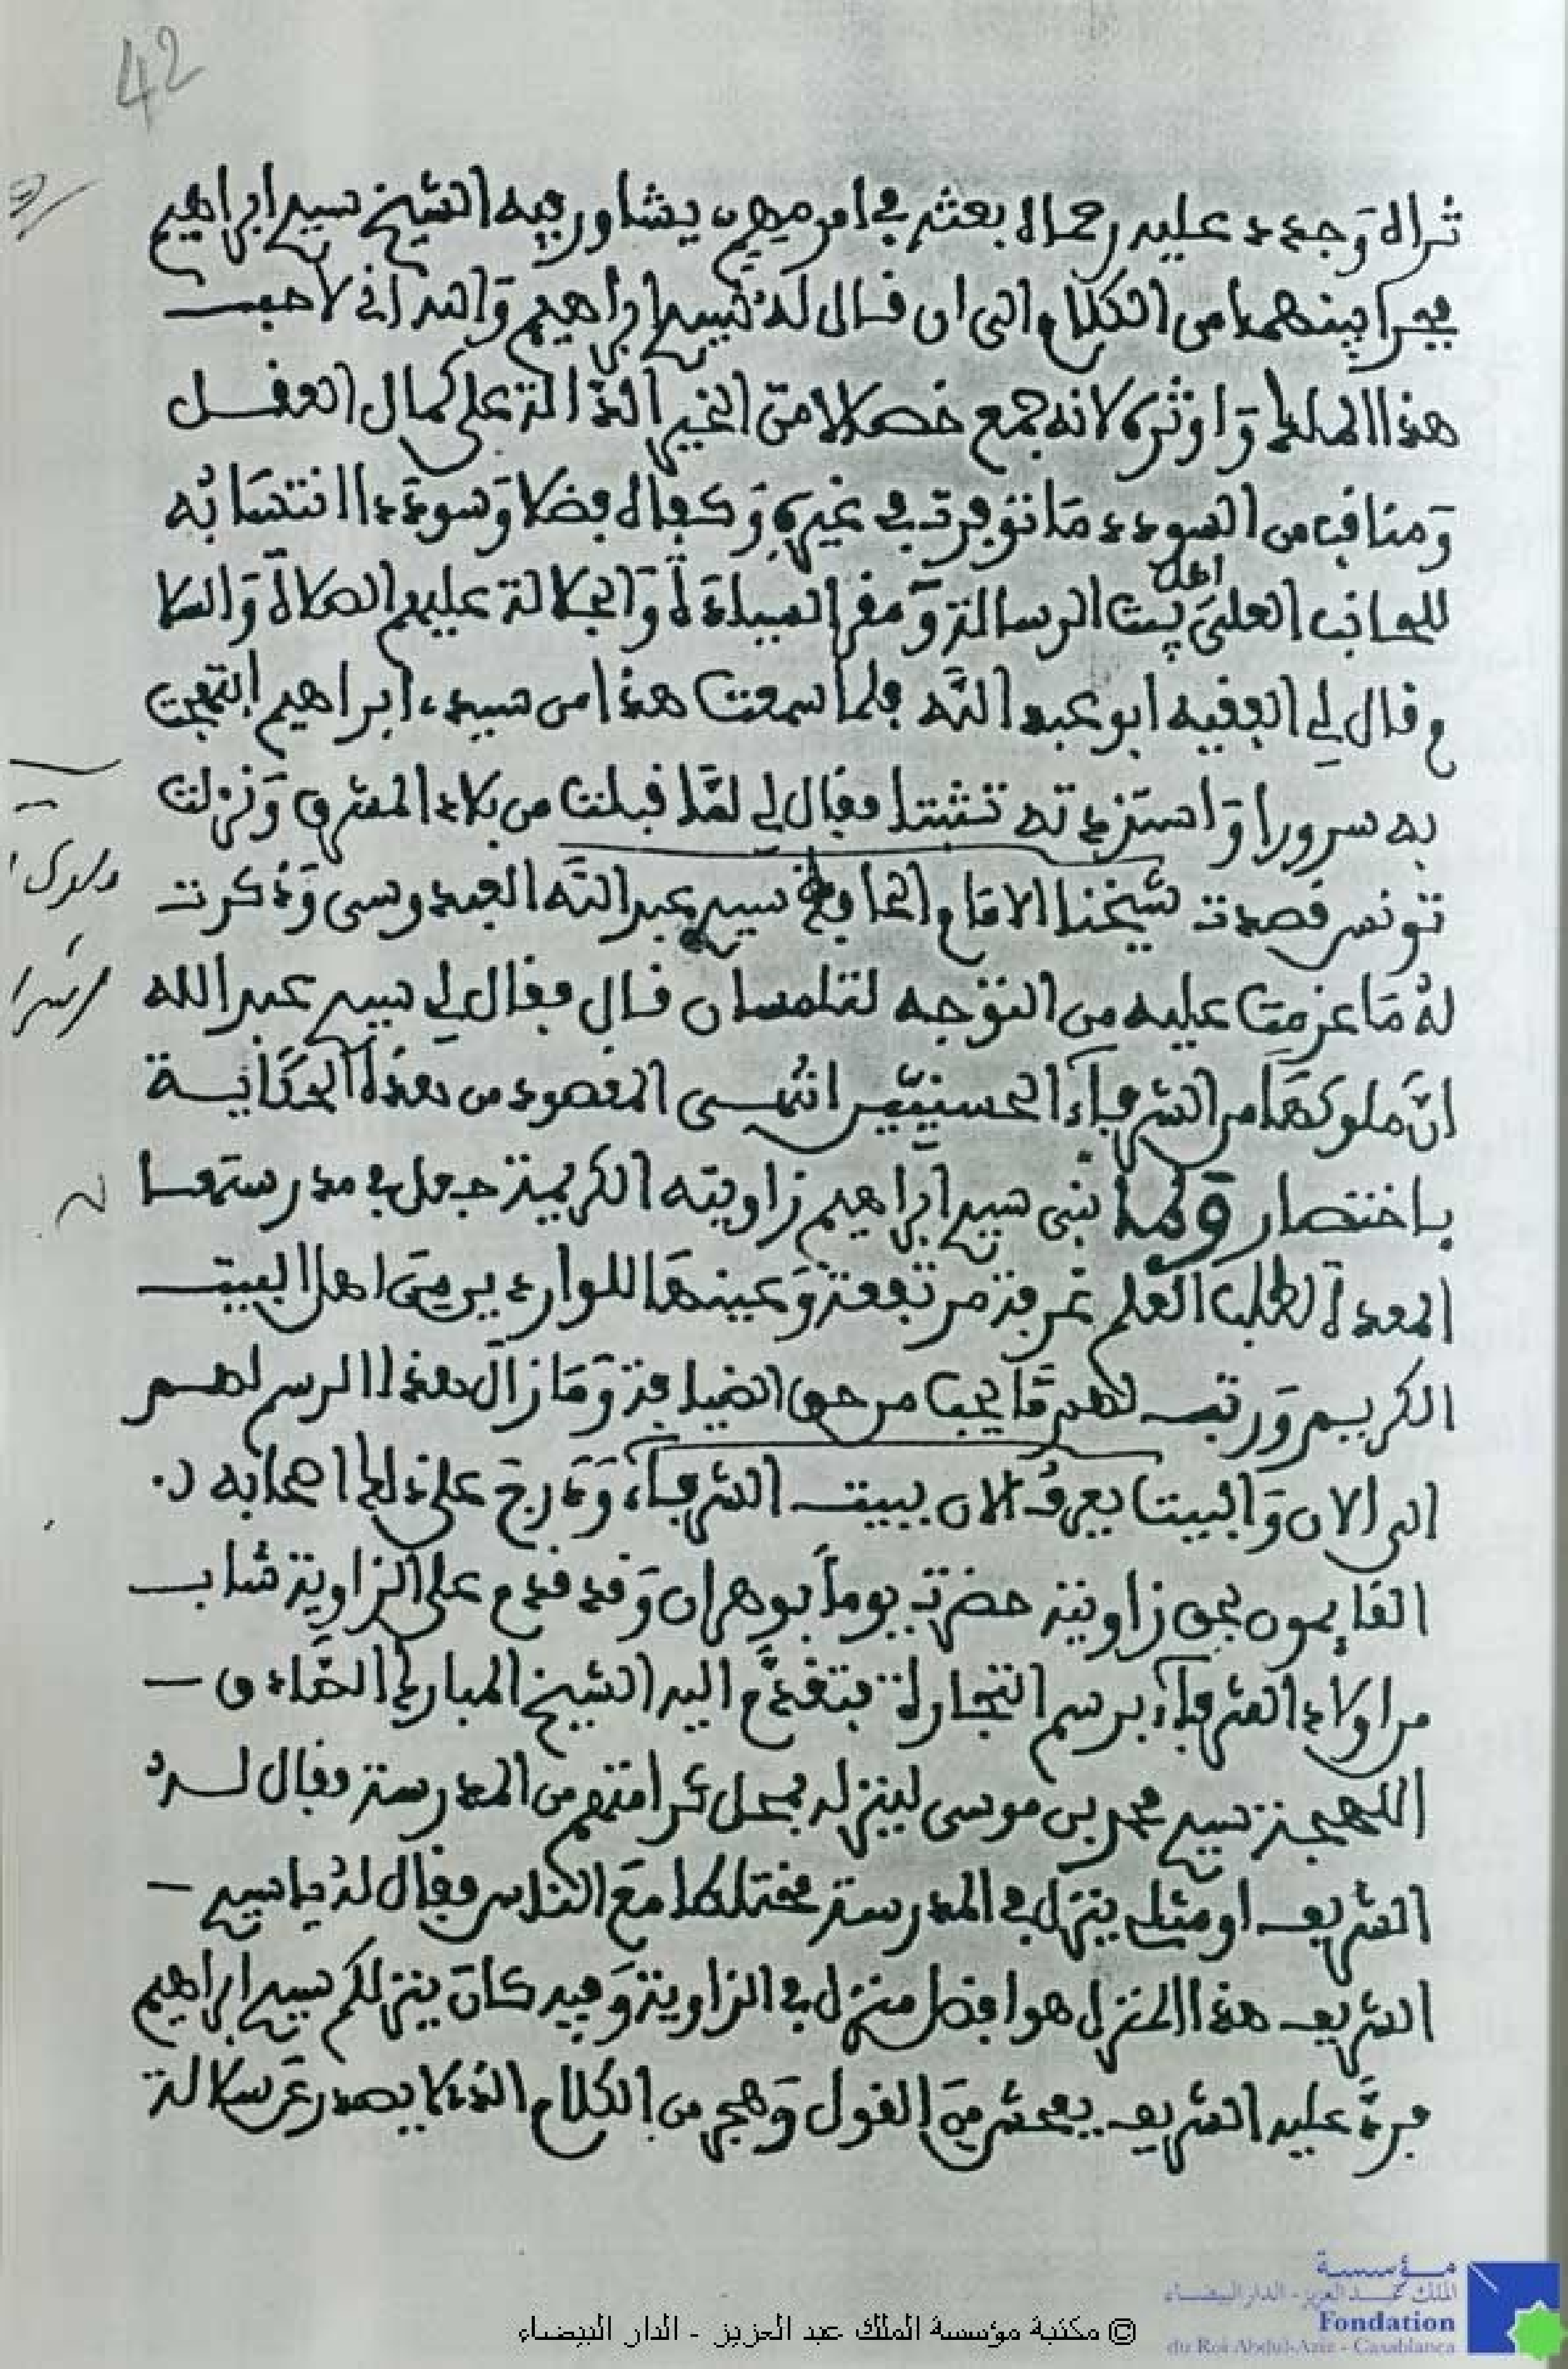 42
ثراه وجدد عليه رحماه بعثه في امر مهم يشاور فيه الشيخ سيدي ابراهيم
فجرا بينهما من الكلام الى ان قال له سيدي ابراهيم والله اني لاحب
هذا الملك واوثره لانه جمع خصالا من الخير الدالة على كمال العقل
ومناقب من السودد ما توفرت في غيره وكفاه فضلا وسوددا انتسابه
للجانب العلي اهل بيت الرسالة ومقر السيادة والجلالة عليهم الصلاة والسلا
م وقال لي الفقيه ابو عبد الله فلما سمعت هذا من سيدي ابراهيم ابتهجت
به سرورا واستزدته تثبتا فقال لي لما قبلت من بلاد المشرق ونزلت
تونس قصدت شيخنا الامام الحافظ سيدي عبد الله العبدوسي وذكرت
له ما عزمت عليه من التوجه لتلمسان قال فقال لي سيدي عبد الله
ان ملوكها من الشرفاء الحسنيين انتهى المقصود من هذه الحكاية
باختصار ولما بنى سيدي ابراهيم زاويته الكريمة جعل في مدرستها
المعدة لطلب العلم غرفة مرتفعة وعينها للواردين من اهل البيت
الكريم ورتب لهم ما يجب من حق الضيافة وما زال هذا الرسم لهم
الى الان والبيت يعرف الان ببيت الشرفاء ودرج على ذلك اصحابه
القايمون بحق زاويته حضرت يوما بوهران وقد قدم على الزاوية شاب
من اولاد الشرفاء برسم التجارة فتقدم اليه الشيخ المبارك الصادق
اللهجة سيدي محمد بن موسى لينزله بمحل كرامتهم من المدرسة فقال له
الشريف او مثلي ينزل في المدرسة مختلطا مع الناس فقال له يا سيدي
الشريف هذا المنزل هو افضل منزل في الزاوية وفيه كان ينزلكم سيدي ابراهيم
فرد عليه الشريف بفحش من القول وهجر من الكلام الذي لا يصدر عن سلالة
مؤسسة
الملك عبد العزيز - الدار البيضاء
Fondation
du Roi Abdul-Aziz - Casablanca
© مكتبة مؤسسة الملك عبد العزيز - الدار البيضاء